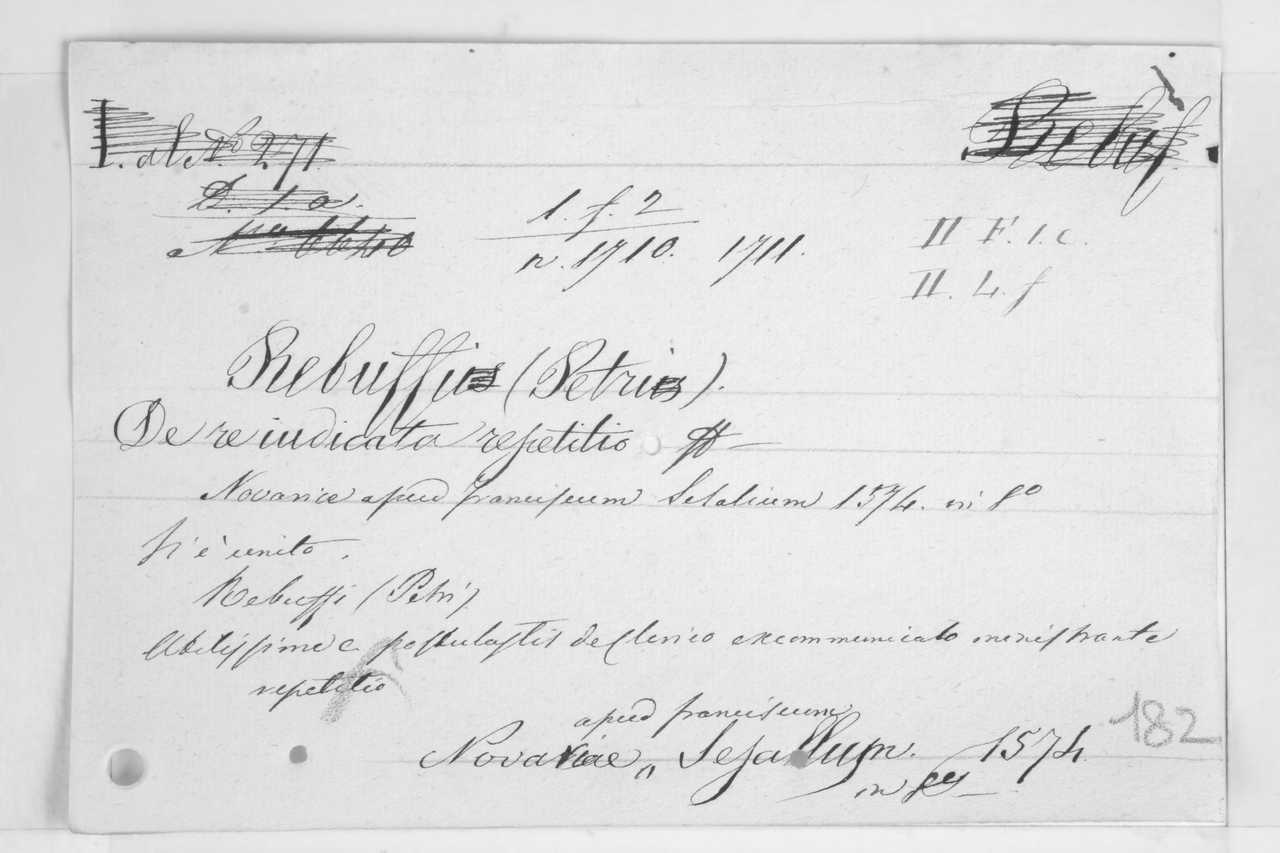 I. al. No 271
Rebuf.
D. 1. a.
No 6640
1. f. 2
n. 1710. 1711.
II F. 1. c.
II. L. f
Rebuffi (Petri).
De re iudicata repetitio
Novariae apud franciscum Sesalium 1574. in 8o
Vi è unito.
Rebuffi (Petri)
Utilissime postulastis de Clerico excommunicato ministrante
repetitio
apud franciscum
Novariae Sesallum. 1574
in 8o
182